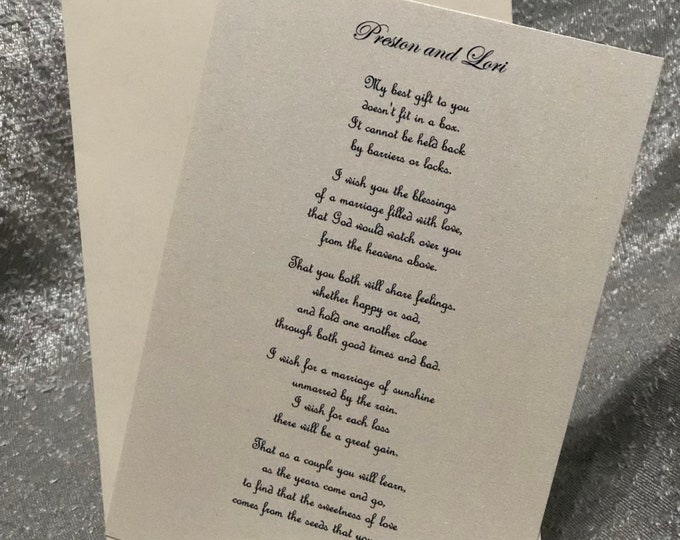 Preston and Lori
My best gift to you
doesn't fit in a box.
It cannot be held back
by barriers or locks.
I wish you the blessings
of a marriage filled with love,
that God would watch over you
from the heavens above.
That you both will share feelings.
whether happy or sad,
and hold one another close
through both good times and bad.
I wish for a marriage of sunshine
unmarred by the rain.
I wish for each loss
there will be a great gain.
That as a couple you will learn,
as the years come and go,
to find that the sweetness of love
comes from the seeds that you